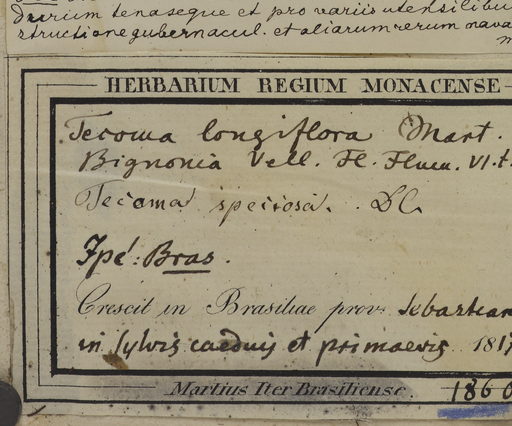 durum tenaseque et pro variis utensilibu
structione gubernacul. et aliarum rerum nava
HERBARIUM REGIUM MONACENSE
Tecoma longiflora Mart.
Bignonia Vell. Fl. Flum. VI. t.
Tecoma speciosa. DC
Ipé: Bras.
Crescit in Brasiliae prov. Sebastian
in sylvis caeduis et primaevis 1817
Martius Iter Brasiliense.
1860